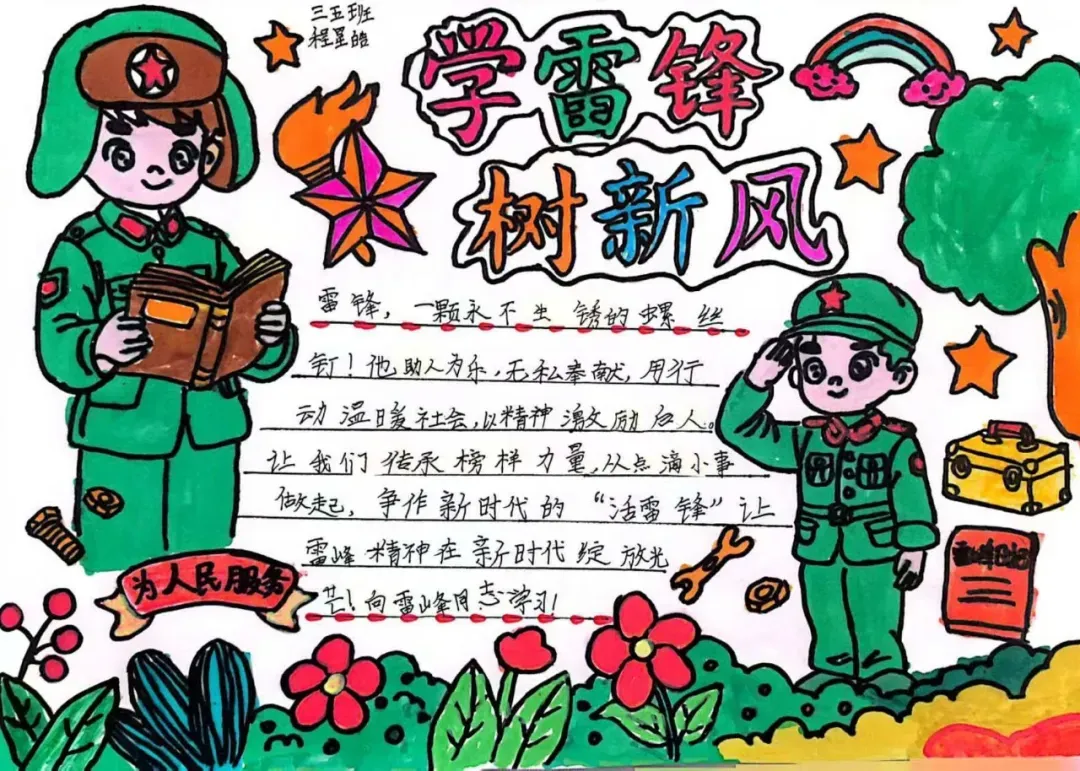 三五班
程星皓
学雷锋
树新风
雷锋，一颗永不生锈的螺丝
钉！他助人为乐，无私奉献，用行
动温暖社会，以精神激励后人。
让我们传承榜样力量，从点滴小事
做起，争作新时代的“活雷锋”让
雷峰精神在新时代绽放光
芒！向雷峰同志学习！
为人民服务